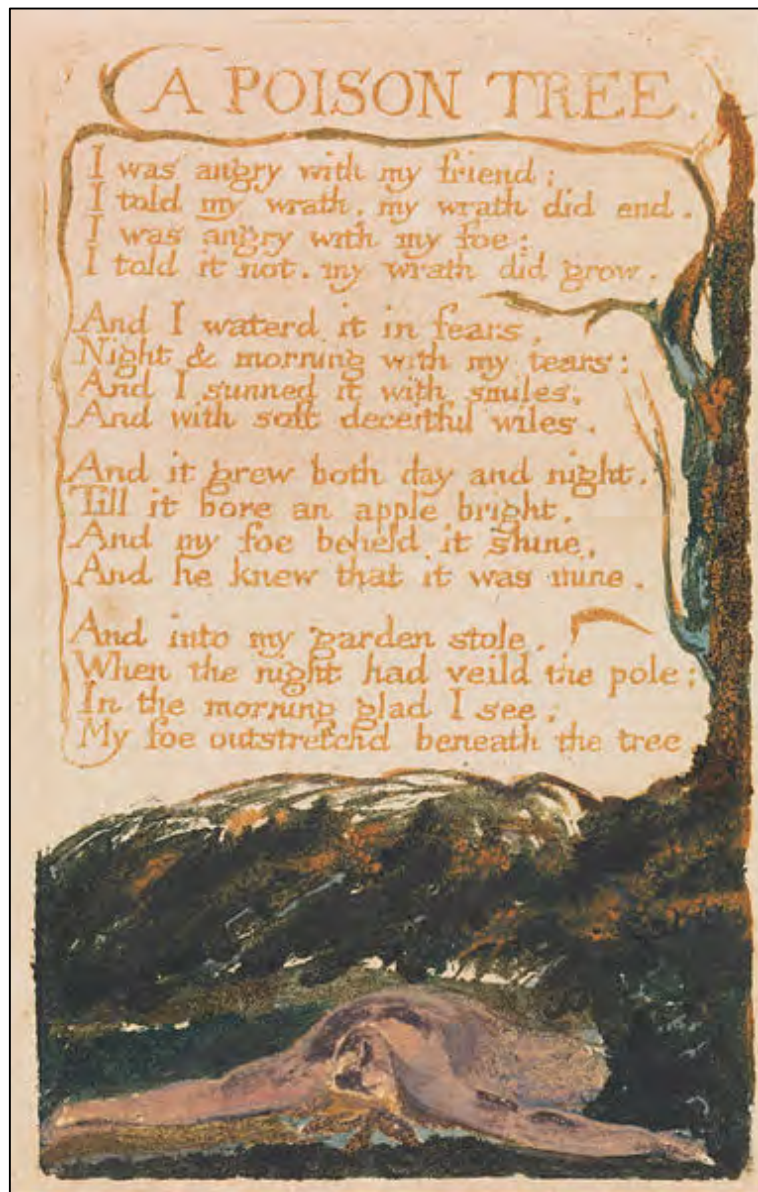 A POISON TREE.
I was angry with my friend:
I told my wrath, my wrath did end.
I was angry with my foe:
I told it not. my wrath did grow.
And I waterd it in fears,
Night & morning with my tears:
And I sunned it with smiles,
And with soft deceitful wiles.
And it grew both day and night.
Till it bore an apple bright.
And my foe beheld it shine,
And he knew that it was mine.
And into my garden stole,
When the night had veild the pole;
In the morning glad I see;
My foe outstretchd beneath the tree